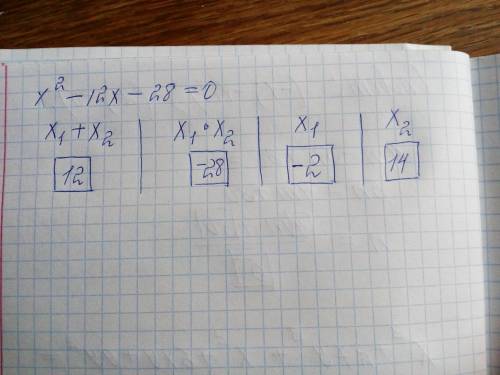 x² - 12x - 28 = 0
x₁ + x₂ | x₁ • x₂ | x₁ | x₂
12 | -28 | -2 | 14